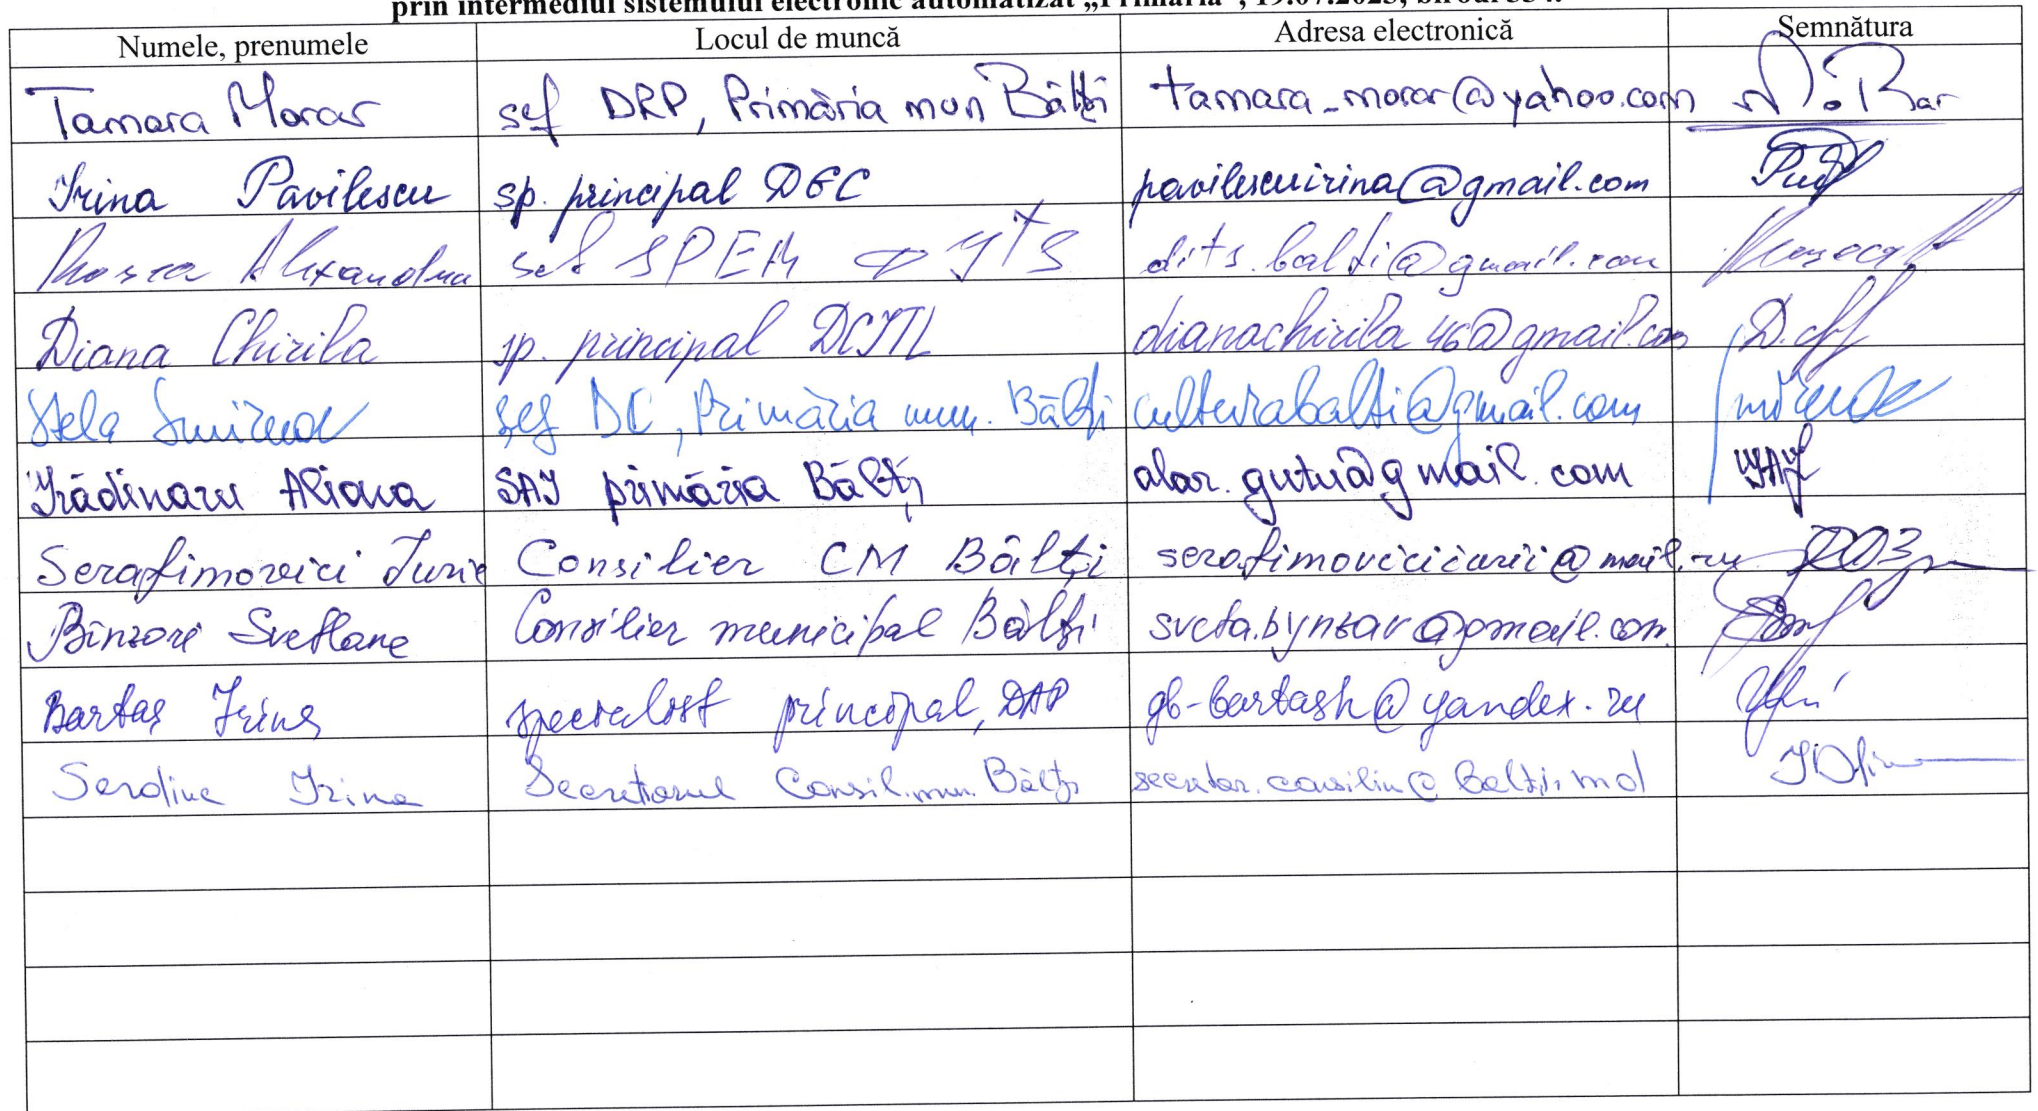 prin intermediul sistemului electronic automatizat „Primăria”, 19.07.2023, biroul
Numele, prenumele Locul de muncă Adresa electronică Semnătura
Tamara Morar șef DRP, Primăria mun Bălți tamara_morar@yahoo.com
Irina Pavilescu sp. principal DGC pavilescuirina@gmail.com
Alexandru șef dits.balti@gmail.com
Diana Chirila sp. principal DCITL dianachirila46@gmail.com
Stela Smirnov șef DC, Primăria mun. Bălți culturabalti@gmail.com
Grădinaru Aliona SAJ primăria Bălți
Serafimovici Iurie Consilier CM Bălți serafimoviciiurii@mail.ru
Svetlana Consilier municipal Bălți sveta.bynzar@gmail.com
Bartaș Irina specialist principal, DAP gb-bartash@yandex.ru
Serdiuc Irina Secretarul Consil. mun. Bălți secretar.consiliu@balti.md